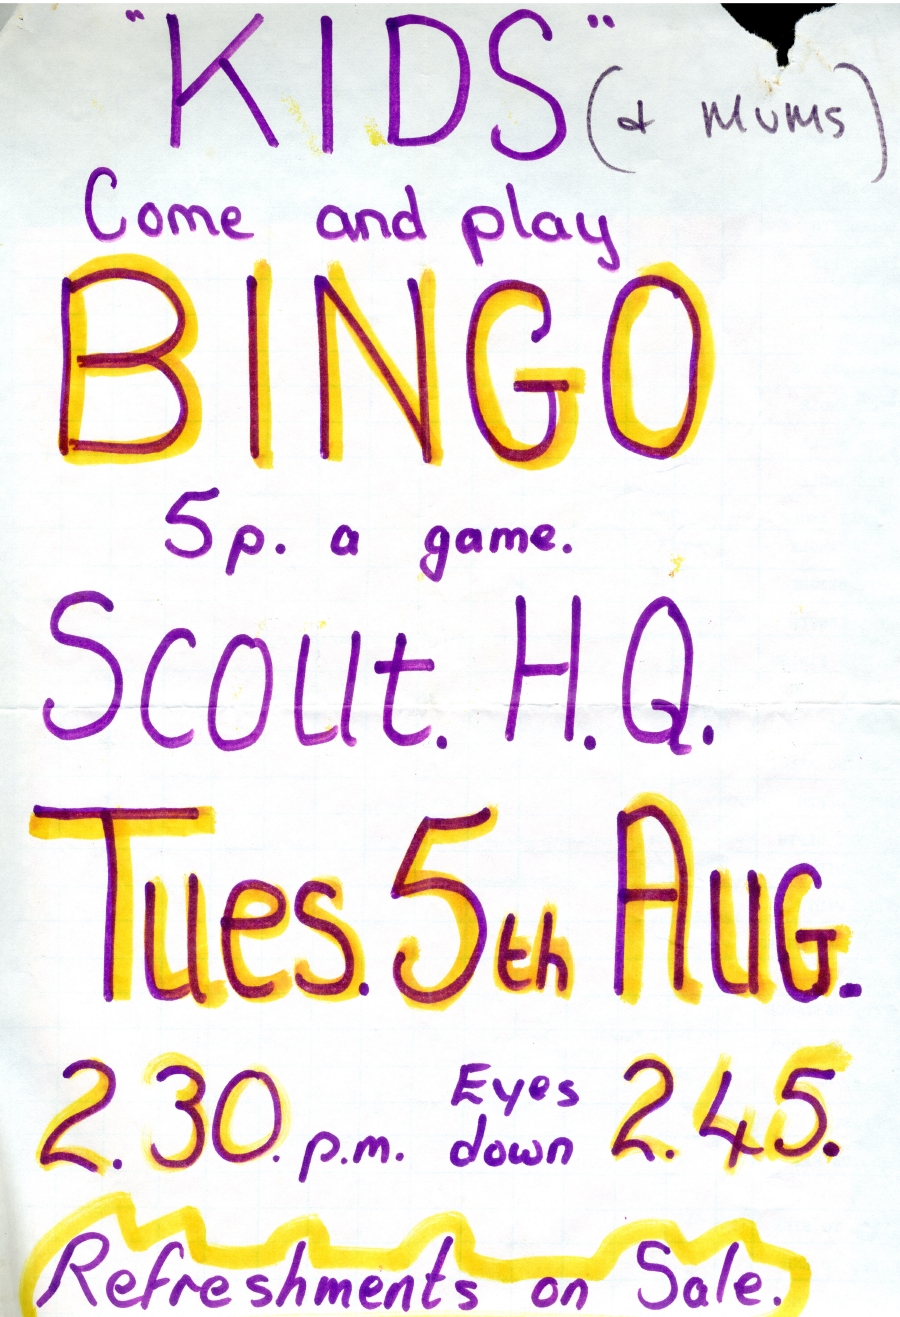 "KIDS" (& Mums)
Come and play
BINGO
5p. a game.
Scout. H.Q.
Tues. 5th Aug.
2.30. p.m. Eyes down 2.45.
Refreshments on Sale.